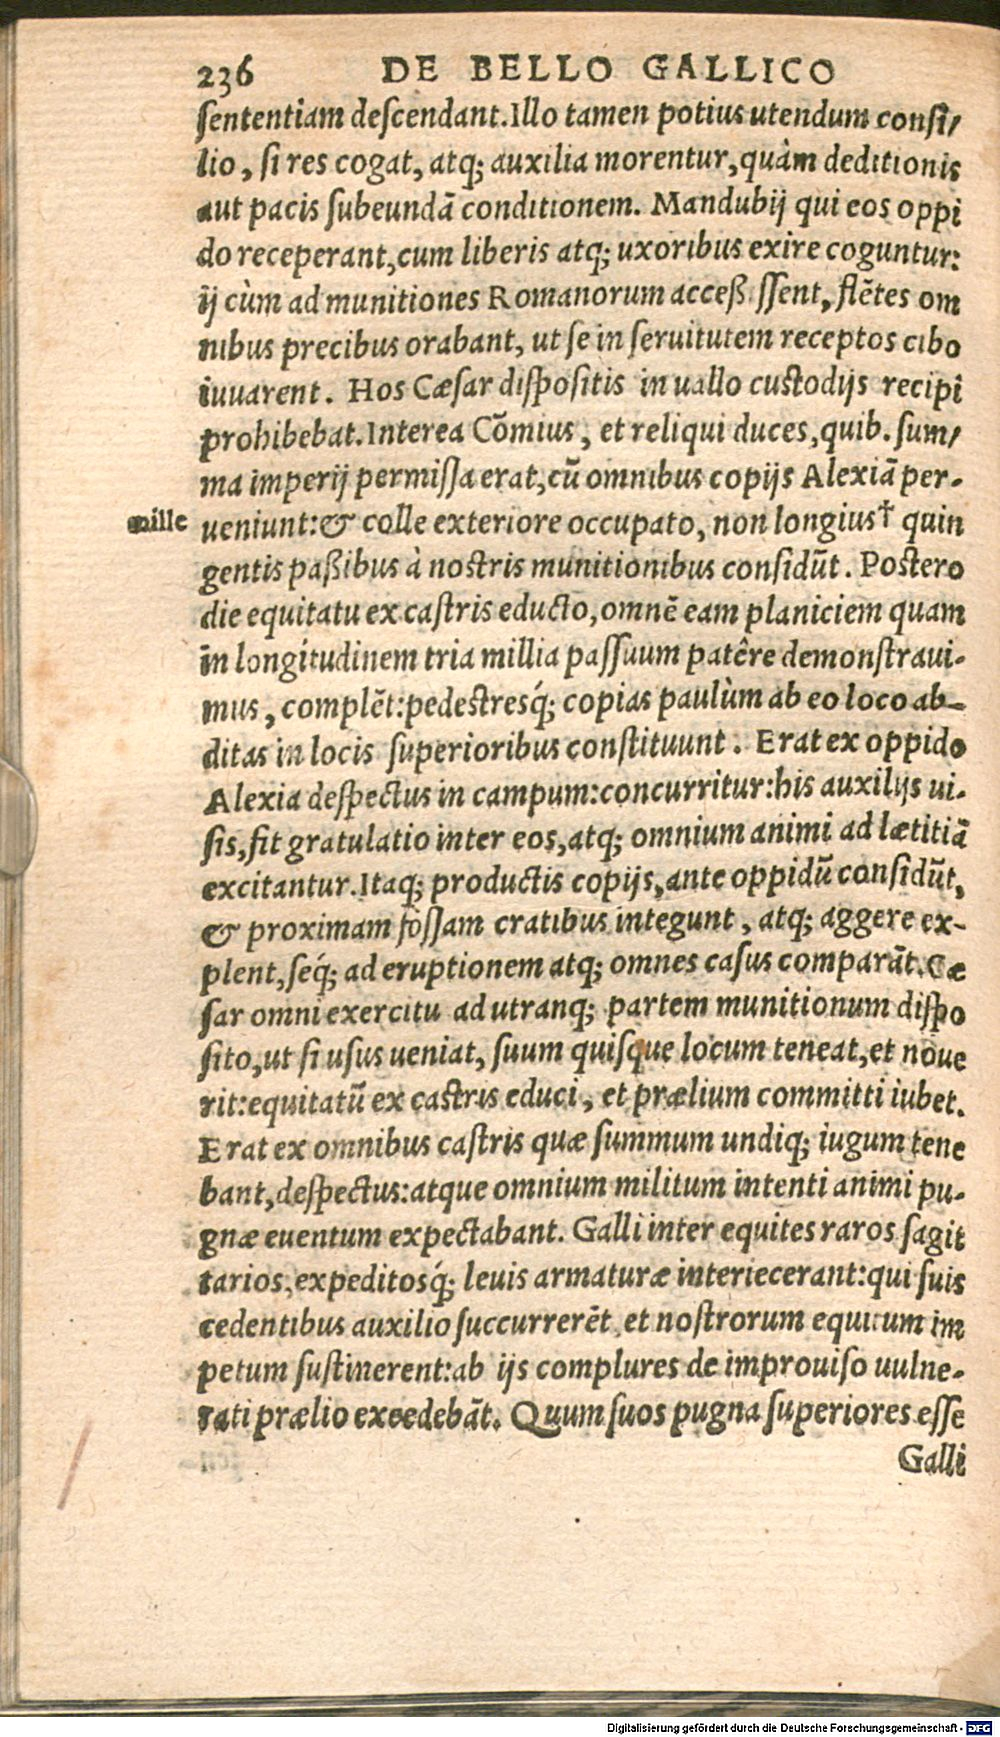 236 DE BELLO GALLICO
ſententiam deſcendant. Illo tamen potius utendum conſi/
lio, ſi res cogat, atq; auxilia morentur, quàm deditionis
aut pacis ſubeundã conditionem. Mandubij qui eos oppi
do receperant, cum liberis atq; uxoribus exire coguntur:
ij cùm ad munitiones Romanorum acceß ſſent, flẽtes om
nibus precibus orabant, ut ſe in ſeruitutem receptos cibo
iuuarent. Hos Cæſar diſpoſitis in uallo custodijs recipi
prohibebat. Interea Cõmius, et reliqui duces, quib. ſum/
ma imperij permiſſa erat, cũ omnibus copijs Alexiã per-
mille ueniunt: & colle exteriore occupato, non longius† quin
gentis paßibus à nostris munitionibus conſidũt. Postero
die equitatu ex caſtris educto, omnẽ eam planiciem quam
in longitudinem tria millia paſſuum patêre demonſtraui-
mus, complẽt: pedestresq́; copias paulùm ab eo loco ab-
ditas in locis ſuperioribus conſtituunt. Erat ex oppido
Alexia deſpectus in campum: concurritur: his auxilijs ui-
ſis, fit gratulatio inter eos, atq; omnium animi ad lætitiã
excitantur. Itaq; productis copijs, ante oppidũ conſidũt,
& proximam foſſam cratibus integunt, atq; aggere ex-
plent, ſeq́; ad eruptionem atq; omnes caſus comparãt. Cæ
ſar omni exercitu ad utranq; partem munitionum diſpo
ſito, ut ſi uſus ueniat, ſuum quiſque locum teneat, et noue
rit: equitatũ ex castris educi, et prælium committi iubet.
Erat ex omnibus caſtris quæ ſummum undiq; iugum tene
bant, deſpectus: atque omnium militum intenti animi pu-
gnæ euentum expectabant. Galli inter equites raros ſagit
tarios, expeditosq́; leuis armaturæ interiecerant: qui ſuis
cedentibus auxilio ſuccurrerẽt, et noſtrorum equitum im
petum ſustinerent: ab ijs complures de improuiſo uulne-
rati prælio excedebãt. Quum ſuos pugna ſuperiores eſſe
Galli
Digitalisierung gefördert durch die Deutsche Forschungsgemeinschaft - DFG